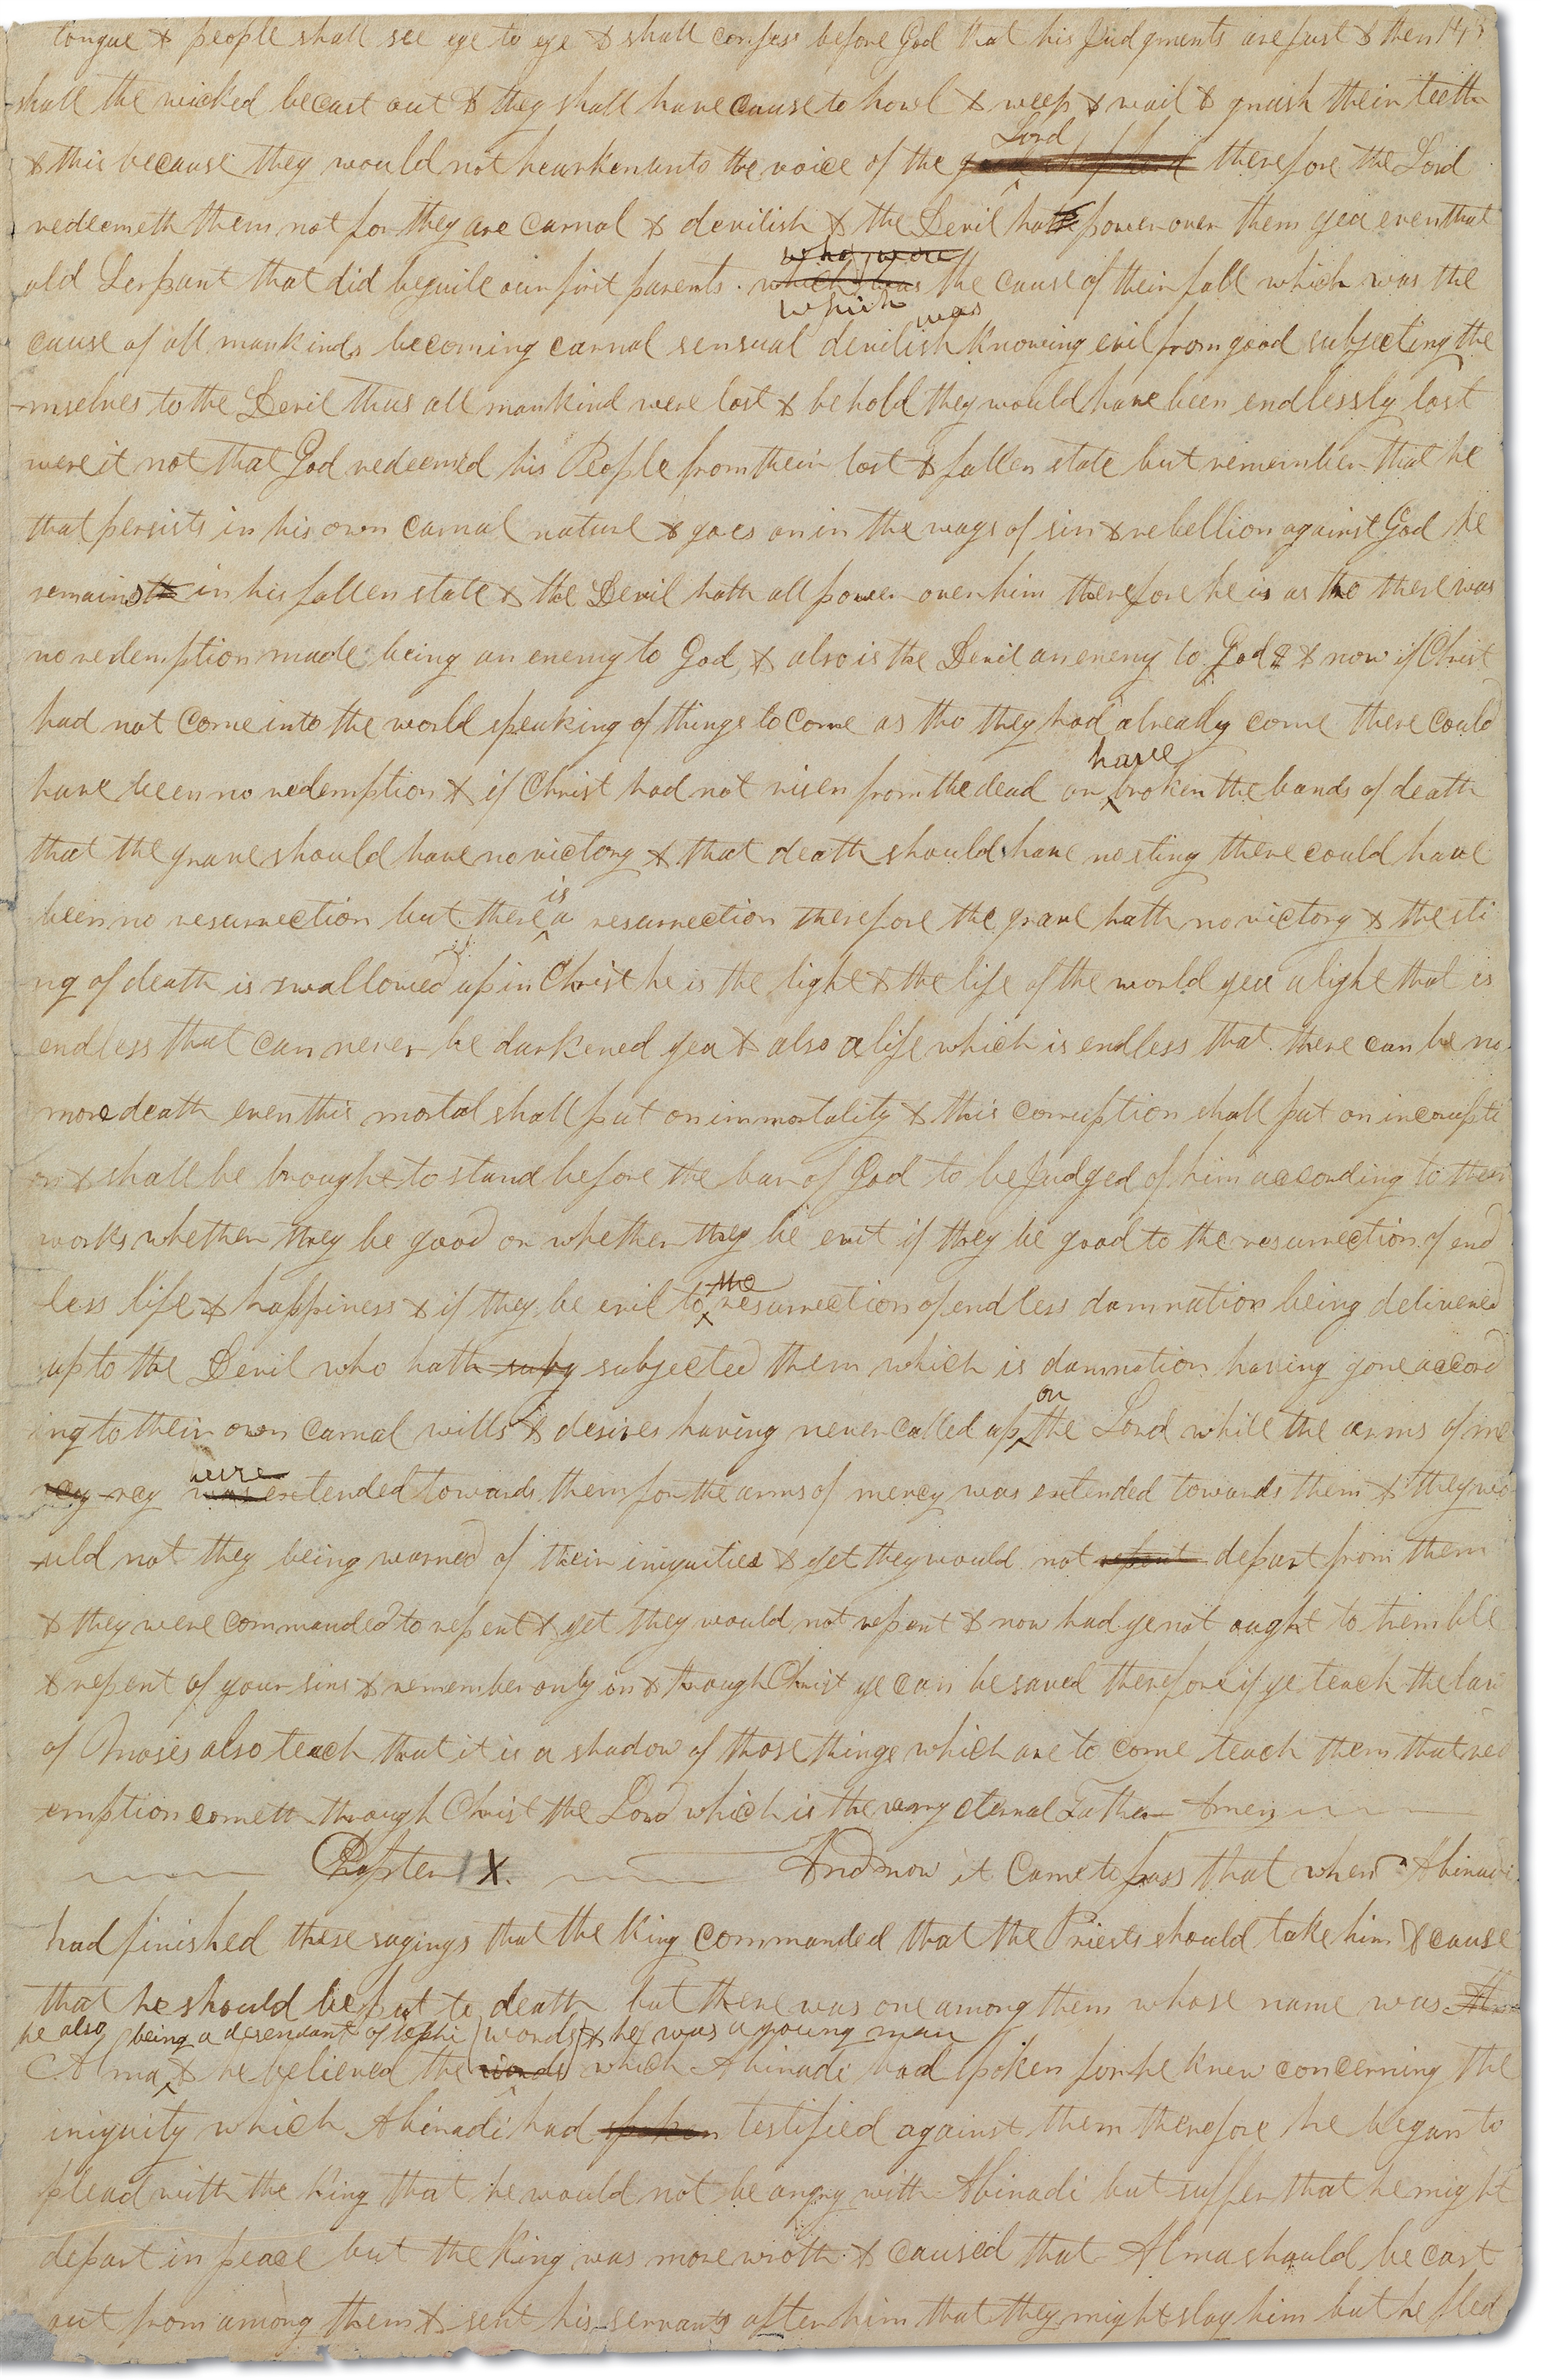 tongue & people shall see eye to eye & shall confess before God that his Judgments are just & then 147
shall the wicked be cast out & they shall have cause to howl & weep & wail & gnash their teeth
Lord
& this because they would not hearken unto the voice of the therefore the Lord
redeemeth them not for they are carnal & devilish & the Devil hath power over them yea even that
who were
old Serpant that did beguile our first parents which was the cause of their fall which was the
which was
cause of all mankinds becoming carnal sensual devilish knowing evil from good subjecting the
-mselves to the Devil thus all mankind were lost & behold they would have been endlessly lost
were it not that God redeemed his People from their lost & fallen state but remember that he
that persists in his own carnal nature & goes on in the ways of sin & rebellion against God he
remains in his fallen state & the Devil hath all power over him therefore he is as tho there was
no redemption made being an enemy to God, & also is the Devil an enemy to God & & now if Christ
had not come into the world speaking of things to come as tho they had already come there could
have
have been no redemption & if Christ had not risen from the dead or broken the bands of death
that the grave should have no victory & that death should have no sting there could have
is
been no resurrection but there a resurrection therefore the grave hath no victory & the sti
ng of death is swallowed up in Christ he is the light & the life of the world yea a light that is
endless that can never be darkened yea & also a life which is endless that there can be no
more death even this mortal shall put on immortality & this corruption shall put on incorupti
on & shall be brought to stand before the bar of God to be Judged of him according to their
works whether they be good or whether they be evil if they be good to the resurrection of end
the
less life & happiness & if they be evil to resurrection of endless damnation being delivered
up to the Devil who hath subj subjected them which is damnation having gone accord
on
ing to their own carnal wills & desires having never called up the Lord while the arms of me
were
rcy rcy was extended towards them for the arms of mercy was extended towards them & they wo
uld not they being warned of their iniquities & yet they would not repent depart from them
& they were commanded to repent & yet they would not repent & now had ye not aught to tremble
& repent of your sins & remember only in & through Christ ye can be saved therefore if ye teach the law
of Moses also teach that it is a shadow of those things which are to come teach them that red
emption cometh through Christ the Lord which is the very eternal Father Amen
Chapter IX. And now it came to pass that when Abinadi
had finished these sayings that the King commanded that the Priests should take him & cause
that he should be put to death but there was one among them whose name was
he also being a desendant of Nephi words & he was a young man
Alma & he believed the words which Abinadi had spoken for he knew concerning the
iniquity which Abinadi had spoken testified against them therefore he began to
plead with the King that he would not be angry with Abinadi but suffer that he might
depart in peace but the King was more wroth & caused that Alma should be cast
out from among them & sent his servants after him that they might slay him but he fled